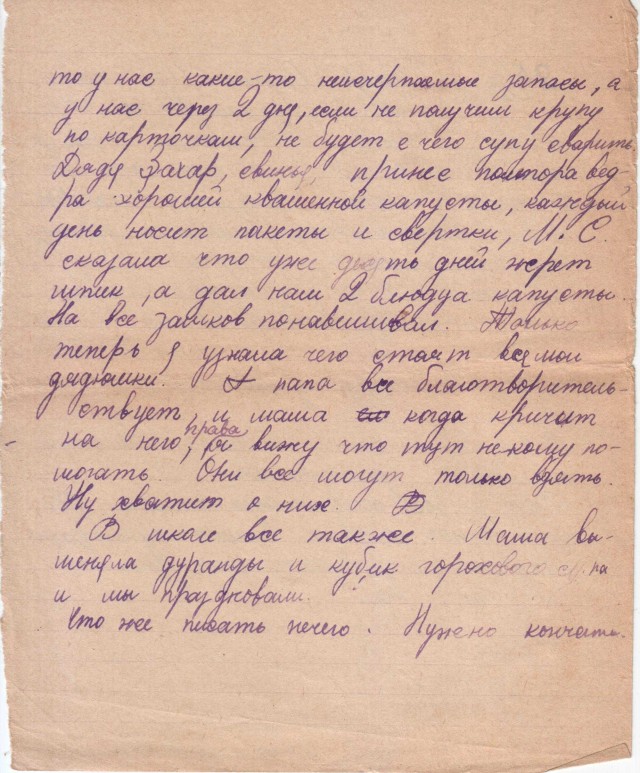 то у нас какие-то неисчерпаемые запасы, а
у нас через 2 дня, если не получим крупу
по карточкам, не будет с чего супу сварить.
Дядя Захар, свинья, принес полтора вед-
ра хорошей квашенной капусты, каждый
день носит пакеты и свертки, М. С.
сказала что уже девять дней жрет
шпик, а дал нам 2 блюдца капусты.
На все замков понавешивал. Только
теперь я узнала чего стоят все мои
дядюшки. А папа все благотворитель-
ствует, и мама когда кричит
на него, права, я вижу что тут некому по-
могать. Они все могут только взять.
Ну хватит о них.
В школе все также. Мама вы-
меняла дуранды и кубик горохового супа
и мы праздновали.
Что же писать нечего. Нужно кончать.